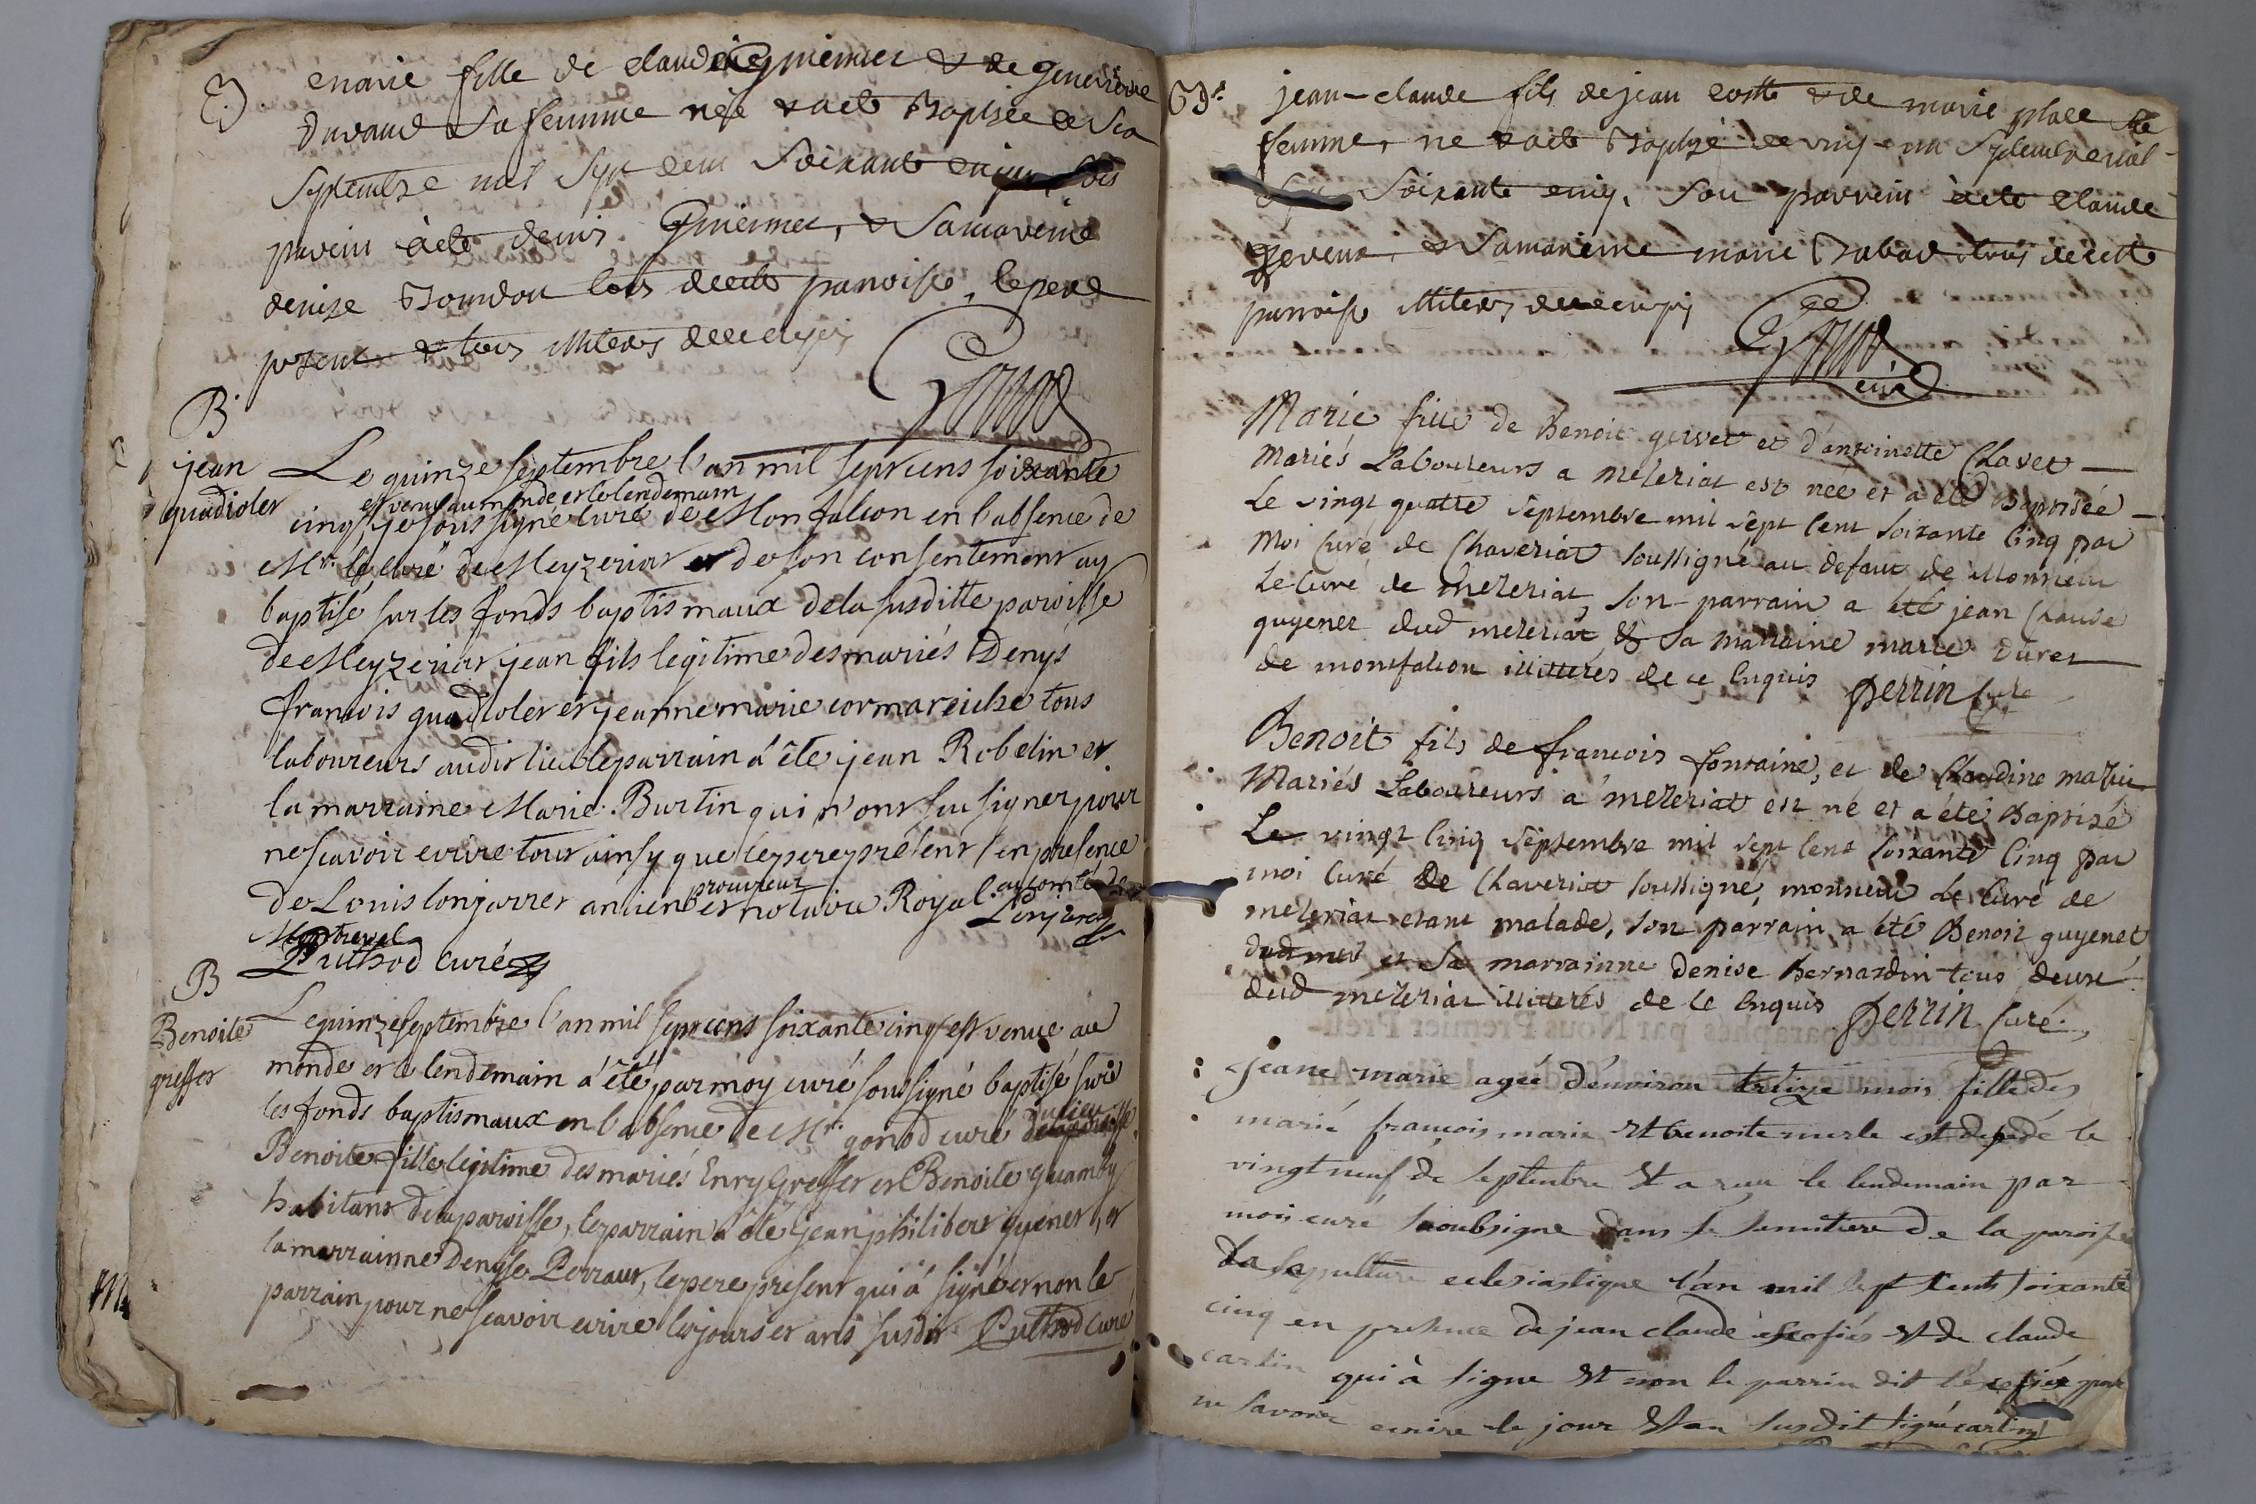 B. marie fille de claude guienier & de genevieve
Duraud sa femme née & a eté Baptisée le six
septembre mil sept cens soixante cinq son
parein à eté denis guienier, & sa mareine
denise Bourdon tous de cette paroisse, le pere
present & tous illiterés de ce enquis
Gonod
B
jean
quadioler
Le quinze septembre l'an mil sept cens soixante
est venu au monde et le lendemain
cinq, je sous signé curé de Monfalcon en l'absence de
Mr. le curé de Meyzeriat et de son consentement ay
baptisé sur les fonds baptismaux de la susditte paroisse
de Meyzeriat jean fils legitime des mariés Denys
francois quadioler et jeanne marie cormareiche tous
laboureurs audit lieu le parrain a été jean Robelin et
la marraine Marie Burtin qui n'ont sçu signer pour
ne scavoir ecrire tout ainsy que le pere present en presence
de Louis lonjarret ancien procureur et notaire Royal au comté de
Montrevel Lonjaret
Puthod curé
B
Benoite
greffet
Le quinze septembre l'an mil sept cens soixante cinq est venue au
monde et le lendemain a été par moy curé soussigné baptisé sur
les fonds baptismaux en l'absence de Mr. gonod curé du lieu
Benoite fille legitime des mariés Enry Greffet et Benoite
habitans de la paroisse, le parrain a été jean philibert guyenet, et
la marrainne Denyse Perraut, le pere present qui a signé et non le
parrain pour ne scavoir ecrire les jours et ans susdit Puthod curé
jean-claude fils de jean coste & de marie place sa
femme, né & a eté Baptizé le vingt un septembre mil
sept soixante cinq, son parrein à eté claude
& sa mareine marie Rabad tous de cette
paroisse illiterés de ce enquis
Gonod
curé
Marie fille de Benoit guivet et d'antoinette Chavet
Mariés Laboureurs a mezeriat est née et a eté Baptisée
Le vingt quatre septembre mil sept cent soixante Cinq par
Moi Curé de Chaveriat soussigné au defaut de Monsieur
Le Curé de mezeriat, son parrain a eté jean Claude
guyenet dud mezeriat & sa marraine marie Duret
de montfalcon illitterés de ce Enquis Perrin Curé
Benoit fils de francois fontaine, et de Claudine mathie
Mariés Laboureurs a mezeriat est né et a été Baptisé
Le vingt Cinq septembre mil sept Cent soixante Cinq par
moi Curé de Chaveriat soussigné, monsieur Le Curé de
mezeriat etant malade, son parrain a eté Benoit guyenet
dud mez et sa marrainne denise Bernardin tous deux
dud mezeriat illitterés de ce Enquis Perrin Curé
jeane marie agée d'environ treize mois fille des
marié francois marie et benoite merle est decedé le
vingt neuf de septembre et a reçu le lendemain par
moi curé soubsigné dans le simitiere de la paroisse
La sepulture eclesiastique l'an mil sept cents soixante
cinq en presence de jean claude escofiés et de claude
carlin qui à signe et non le parrin dit l'escofiér pour
ne savoir ecrire le jour et an susdit signé carlin